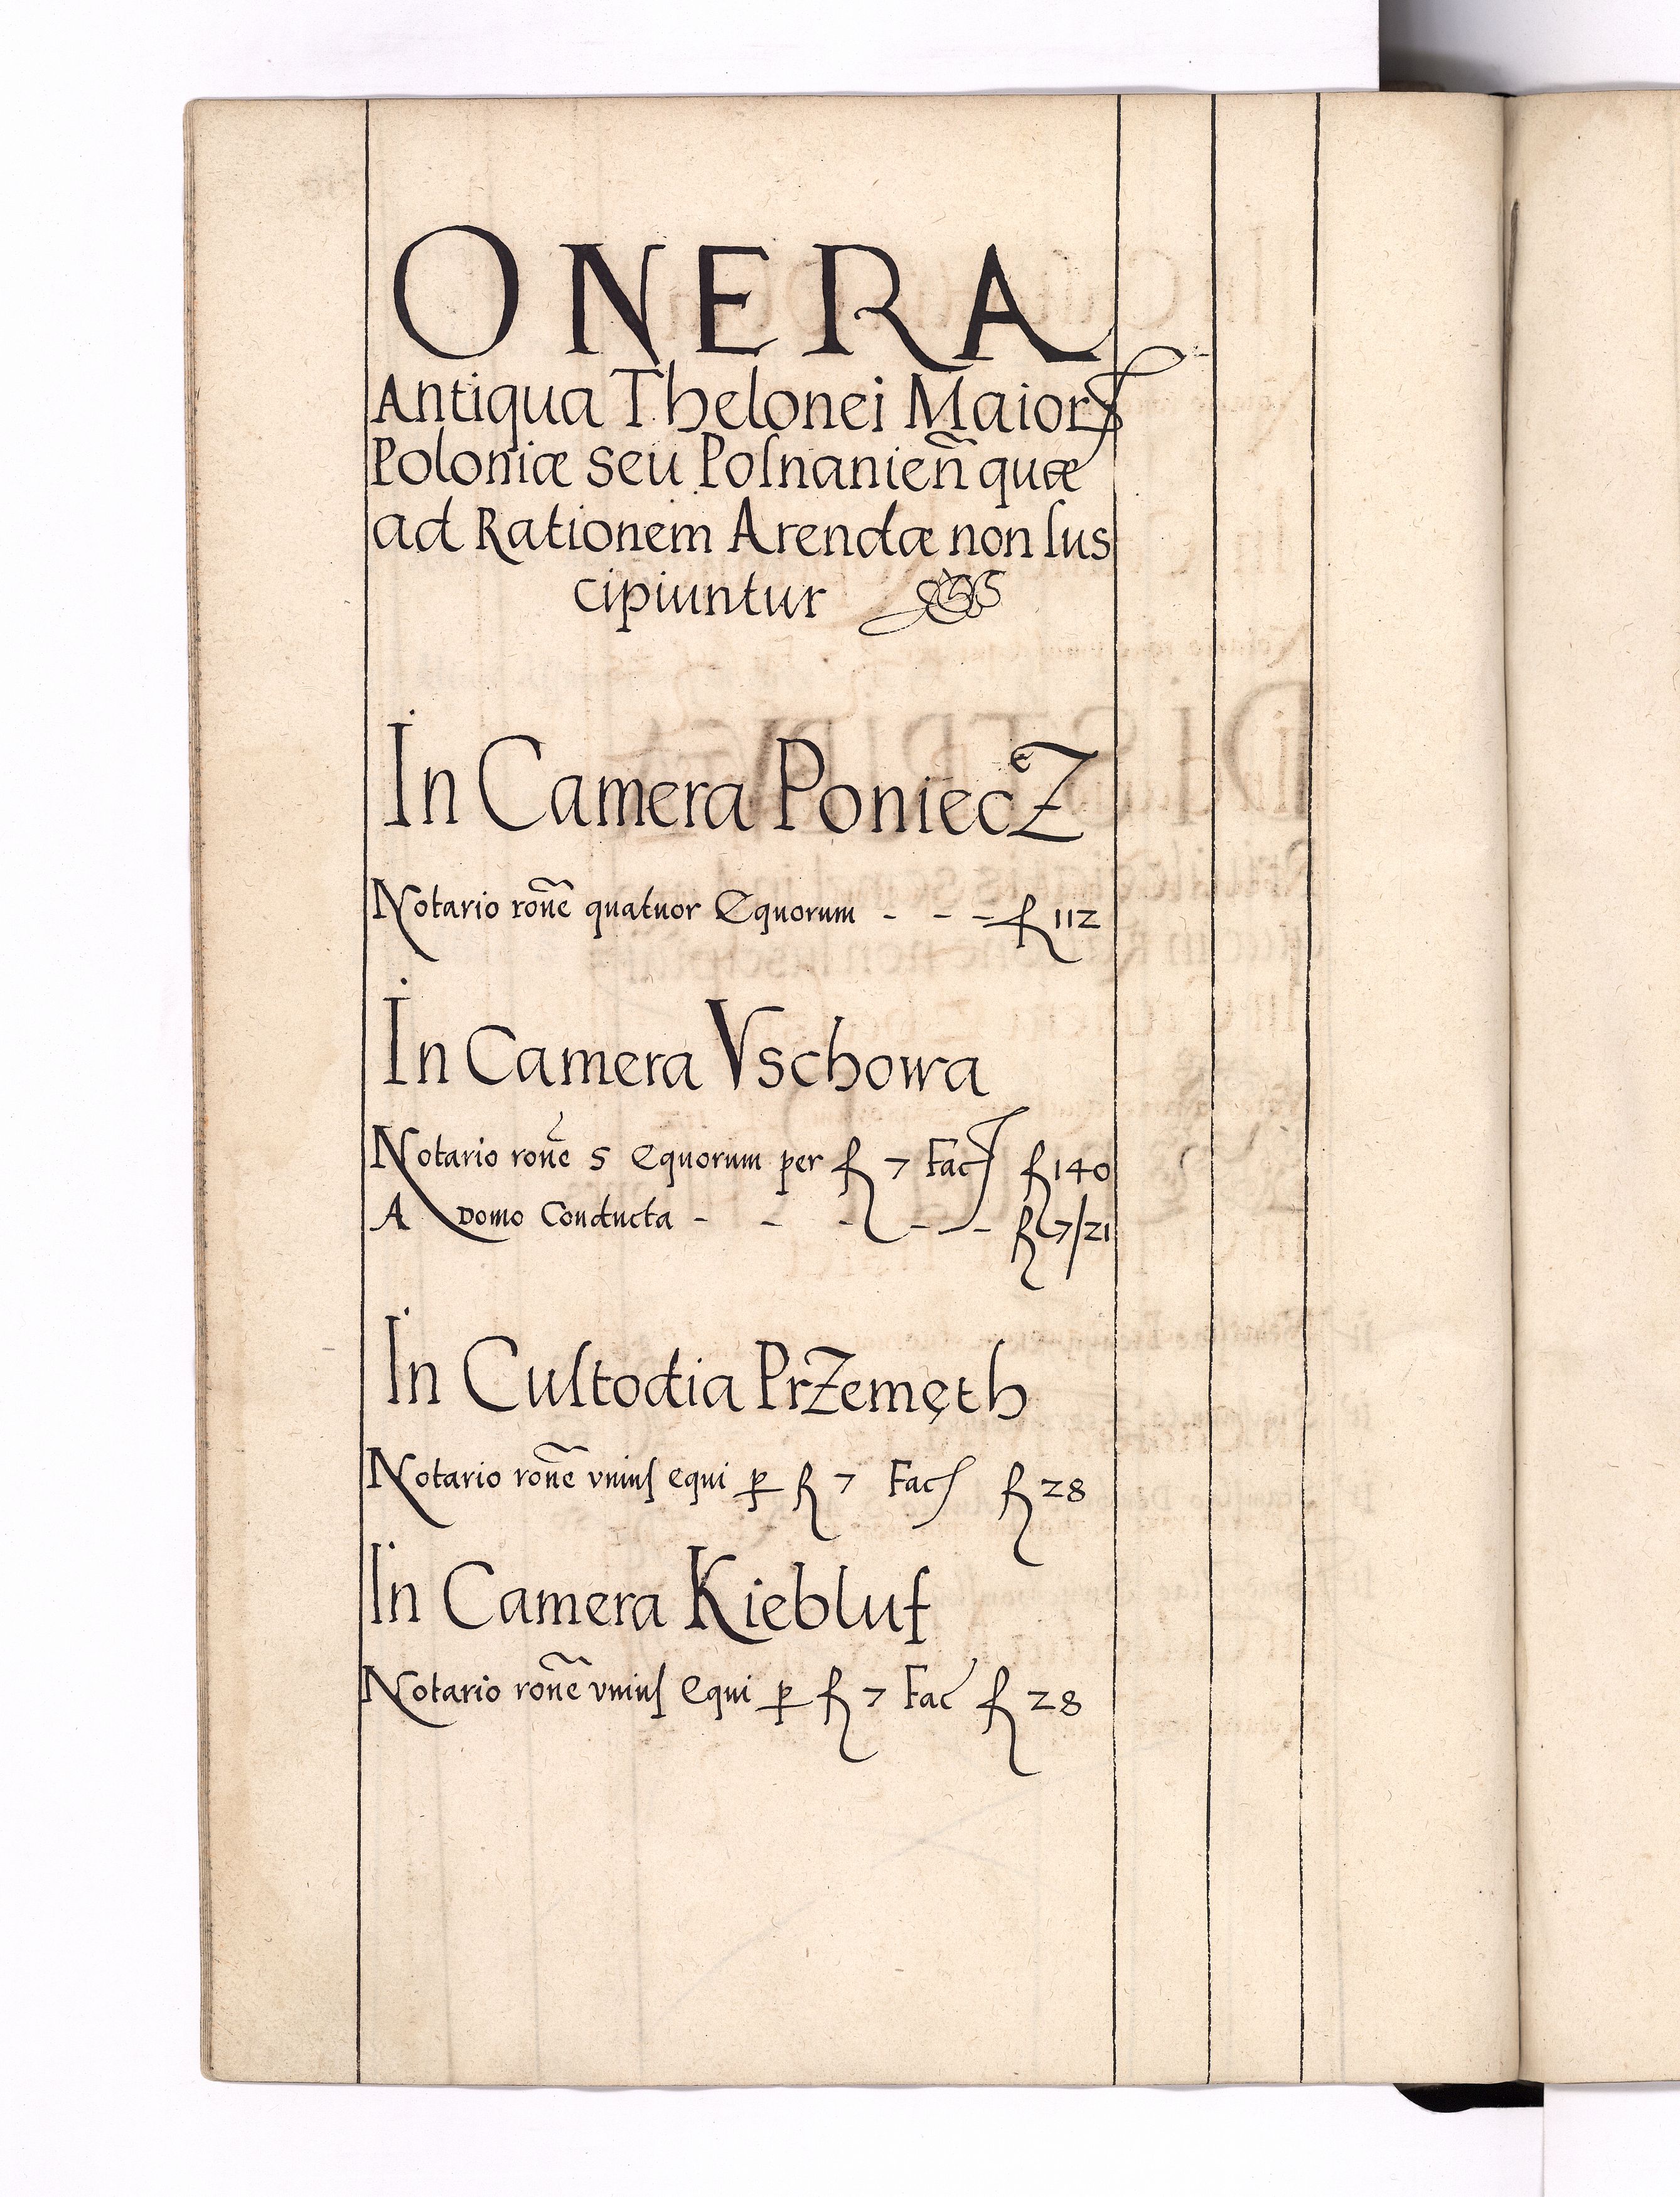 ONERA
Antiqua Thelonei Maioris
Poloniæ seu Poſnanieñ quæ
ad Rationem Arendæ non ſus
cipiuntur
In Camera PoniecZ
Notario rõne quatuor Equorum - - - fl 112
In Camera Vschowa
Notario rõne 5 Equorum per fl 7 Fac fl 140
A Domo Conducta - - - - - fl 7/21
In Cuſtodia PrZemęth
Notario rõne vniuſ equi p̱ fl 7 Fac fl 28
In Camera Kiebluf
Notario rõne vniuſ Equi p̱ fl 7 Fac fl 28